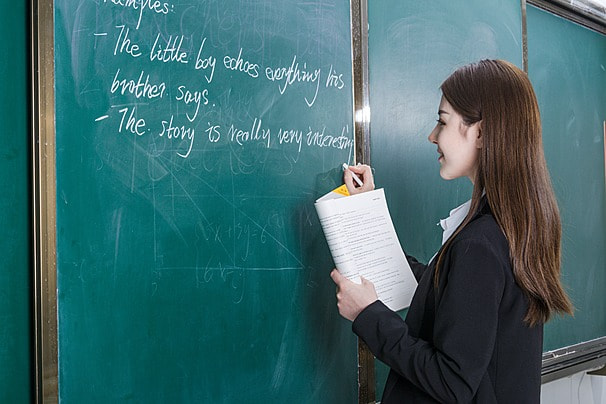 Examples:
- The little boy echoes everything his
brother says.
- The story is really very interesting